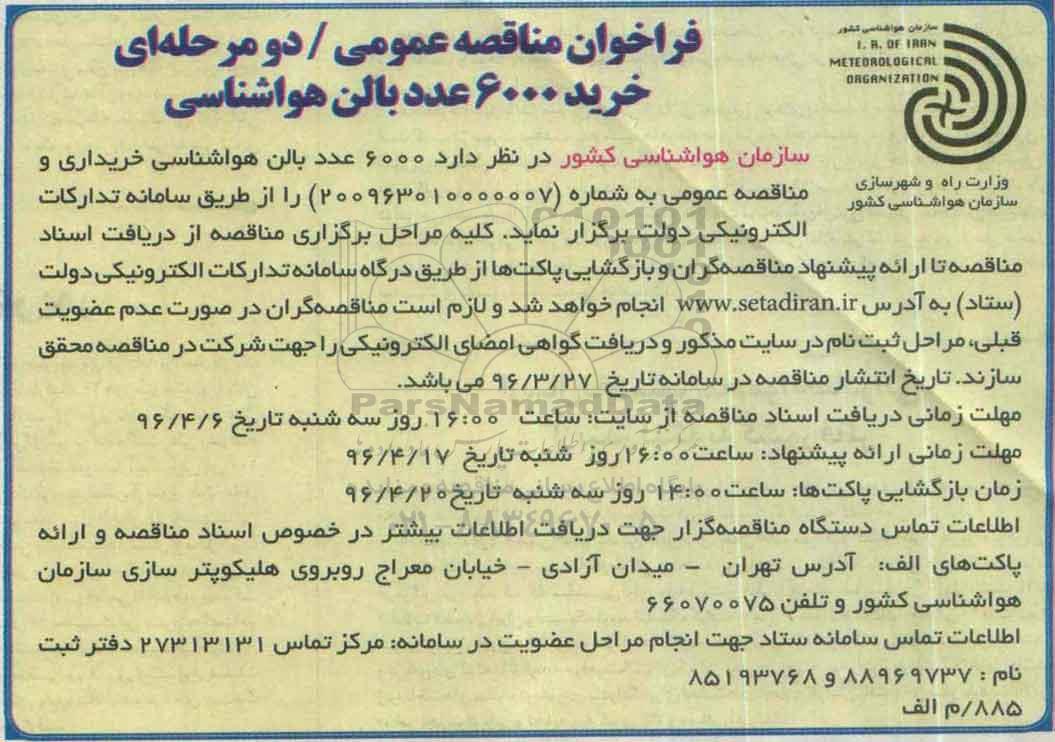 سازمان هواشناسی کشور
I. R. OF IRAN
METEOROLOGICAL
ORGANIZATION
وزارت راه و شهرسازی
سازمان هواشناسی کشور
فراخوان مناقصه عمومی / دو مرحله‌ای
خرید ۶۰۰۰ عدد بالن هواشناسی
سازمان هواشناسی کشور در نظر دارد ۶۰۰۰ عدد بالن هواشناسی خریداری و
مناقصه عمومی به شماره (۲۰۰۹۶۳۰۱۰۰۰۰۰۰۷) را از طریق سامانه تدارکات
الکترونیکی دولت برگزار نماید. کلیه مراحل برگزاری مناقصه از دریافت اسناد
مناقصه تا ارائه پیشنهاد مناقصه‌گران و بازگشایی پاکت‌ها از طریق درگاه سامانه تدارکات الکترونیکی دولت
(ستاد) به آدرس www.setadiran.ir انجام خواهد شد و لازم است مناقصه‌گران در صورت عدم عضویت
قبلی، مراحل ثبت نام در سایت مذکور و دریافت گواهی امضای الکترونیکی را جهت شرکت در مناقصه محقق
سازند. تاریخ انتشار مناقصه در سامانه تاریخ ۹۶/۳/۲۷ می باشد.
مهلت زمانی دریافت اسناد مناقصه از سایت: ساعت ۱۶:۰۰ روز سه شنبه تاریخ ۹۶/۴/۶
مهلت زمانی ارائه پیشنهاد: ساعت ۱۶:۰۰ روز شنبه تاریخ ۹۶/۴/۱۷
زمان بازگشایی پاکت‌ها: ساعت ۱۴:۰۰ روز سه شنبه تاریخ ۹۶/۴/۲۰
اطلاعات تماس دستگاه مناقصه‌گزار جهت دریافت اطلاعات بیشتر در خصوص اسناد مناقصه و ارائه
پاکت‌های الف: آدرس تهران – میدان آزادی – خیابان معراج روبروی هلیکوپتر سازی سازمان
هواشناسی کشور و تلفن ۶۶۰۷۰۰۷۵
اطلاعات تماس سامانه ستاد جهت انجام مراحل عضویت در سامانه: مرکز تماس ۲۷۳۱۳۱۳۱ دفتر ثبت
نام : ۸۸۹۶۹۷۳۷ و ۸۵۱۹۳۷۶۸
۸۸۵/م الف
ParsNamadData